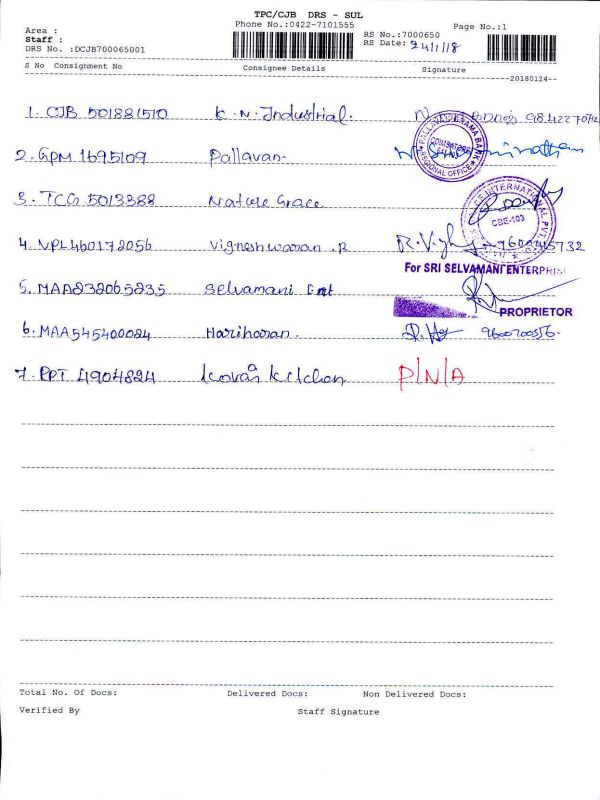 TPC/CJB DRS - SUL
Phone No.:0422-7101555
Page No.:1
Area :
Staff :
DRS No. :DCJB700065001
RS No.:7000650
RS Date: 24/1/18
S No Consignment No Consignee Details Signature
20180124
1. CJB 501881510 K. N. Industrial.
2. GPM 1695109 Pallavan
PALLAVAN GRAMA BANK
COIMBATORE
REGIONAL OFFICE
3. TCG 5013388 Nature Grace
INTERNATIONAL PVT
CBE-103
4. VPL460172056 Vigneshwaran .R
For SRI SELVAMANI ENTERPRIS
5. MAA232065235 Selvamani Ent
PROPRIETOR
6. MAA545400024 Hariharan.
7. PPT 4904824 Kovai Kitchen P/N/A
Total No. Of Docs: Delivered Docs: Non Delivered Docs:
Verified By Staff Signature